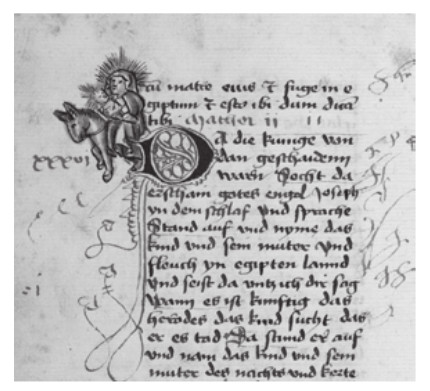 cū matre eius ⁊ fuge in e
giptum ⁊ esto ibi dum dicā
tibi Mathei ii
xxxvi
Da die kunige von
dan geschaidenn
warn da
erscham gotes engel Joseph
yn dem schlaf vnd sprache
Stand auf vnd nyme das
kind vnd sein muter vnd
fleuch yn egipten lannd
vnd seist da vntz ich dir sag
wann es ist kunftig das
herodes das kind sucht das
er es tad Da stund er auf
vnd nam das kind vnd sein
muter des nachts vnd kerte